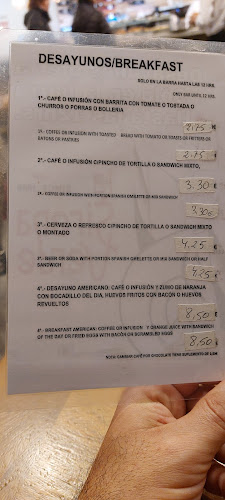 DESAYUNOS/BREAKFAST
SOLO EN LA BARRA HASTA LAS 12 HRS.
ONLY BAR UNTIL 12 HRS.
1º.- CAFÉ O INFUSIÓN CON BARRITA CON TOMATE O TOSTADA O
CHURROS O PORRAS O BOLLERIA
2.75 €
1º.- COFFEE OR INFUSION WITH TOASTED BREAD WITH TOMATO OR TOASTS OR FRITTERS OR
BATONS OR PASTRIES
2.75 €
2º.- CAFÉ O INFUSIÓN C/PINCHO DE TORTILLA O SANDWICH MIXTO,
3.30 €
2º.- COFFEE OR INFUSION WITH PORTION SPANISH OMELETTE OR MIX SANDWICH
3.30 €
3º.- CERVEZA O REFRESCO C/PINCHO DE TORTILLA O SANDWICH MIXTO
O MONTADO
4.25 €
3º.- BEER OR SODA WITH PORTION SPANISH OMELETTE OR MIX SANDWICH OR HALF
SANDWICH
4.25 €
4º.- DESAYUNO AMERICANO: CAFÉ O INFUSIÓN Y ZUMO DE NARANJA
CON BOCADILLO DEL DIA, HUEVOS FRITOS CON BACÓN O HUEVOS
REVUELTOS
8,50 €
4º.- BREAKFAST AMERICAN: COFFEE OR INFUSION Y ORANGE JUICE WITH SANDWICH
OF THE DAY OR FRIED EGGS WITH BACÓN OR SCRAMBLED EGGS
8,50 €
NOTA: CAMBIAR CAFÉ POR CHOCOLATE TIENE SUPLEMENTO DE